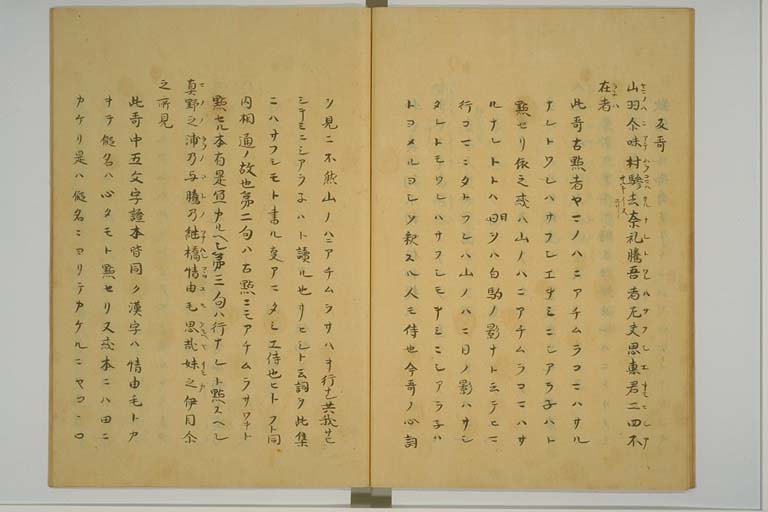 反哥
山羽尓味村驂去奈礼騰吾者左夫思恵君二四不
在者
此哥古點者ヤマノハニアチムラコマハサル
ナレトワレハサフシエキミニシアラ子ハト
點セリ依之或ハ山ノハニアチムラコマハサ
ルナレトトハ日ヲハ白駒ノ影ナト云テヒマ
行コマニタトフレハ山ノハニ日ノ影ハサシ
タレトモワレハサフシモキミニシアラ子ハ
トコメルヨシヲ釈スル人モ侍也今哥ノ心詞
ヲ見ニ不然山ノハニアチムラサハキ行
シキミニシアラ子ハト讀ル也サヒシト云詞ヲ此集
ニハサフシモト書ル事アマタミエ侍也ヒトフト同
内相通ノ故也第二句ハ古點ニモアチムラサワキト
點セル本有是宜カルヘシ第三ノ句ハ行ナレト點スヘシ
真野之浦乃与騰乃継橋情由毛思哉妹之伊目尓
之所見
此哥中五文字諸本皆同ク漢字ハ情由毛トア
ヲ仮名ハ心タモト點セリ又或本ニハ田ニ
カケリ是ハ仮名ニヨリテカケルニヤココロ